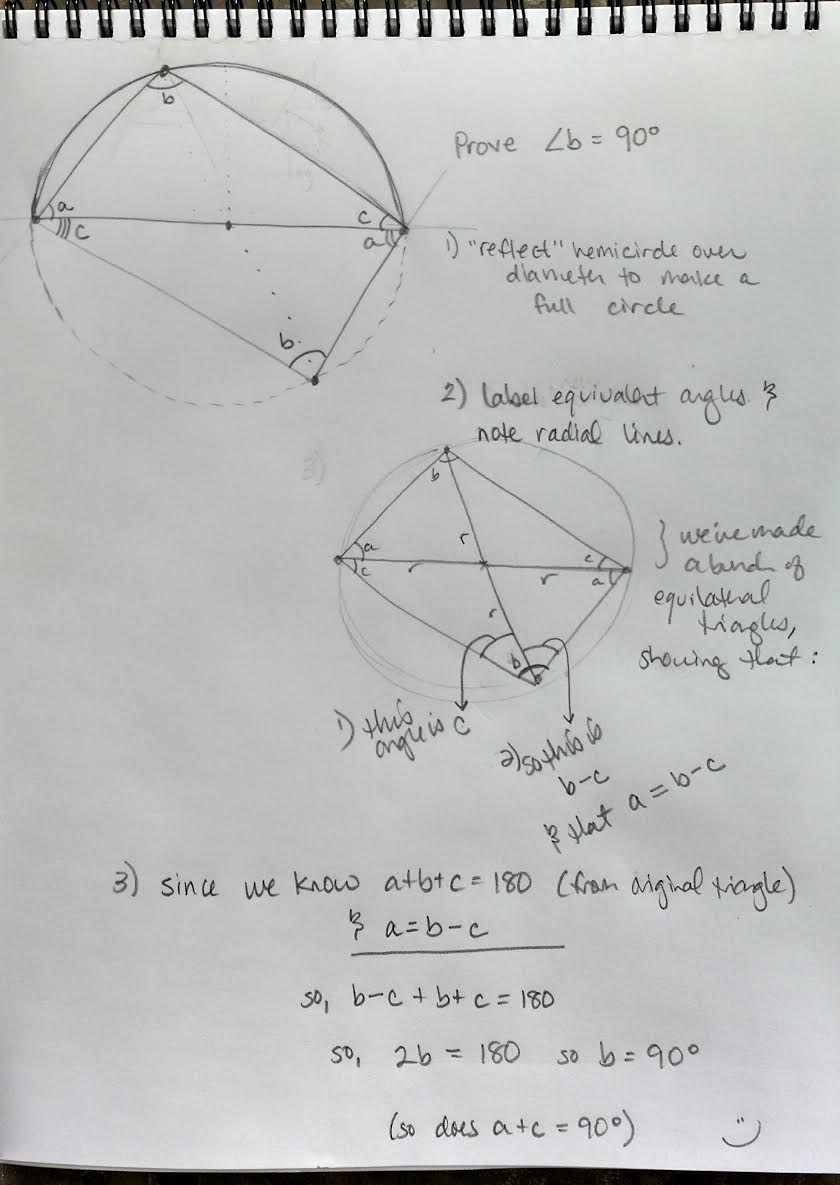 b
a
c
c
a
b
Prove ∠b = 90°
1) "reflect" hemicircle over
diameter to make a
full circle
2) label equivalent angles &
note radial lines.
b
r
a
c
r
r
c
a
r
b
} we've made
a bunch of
equilateral
triangles,
showing that :
1) this
angle is c
2) so this is
b-c
& that a = b-c
3) since we know a+b+c = 180 (from original triangle)
& a = b-c
so, b-c + b + c = 180
so, 2b = 180 so b = 90°
(so does a+c = 90°)